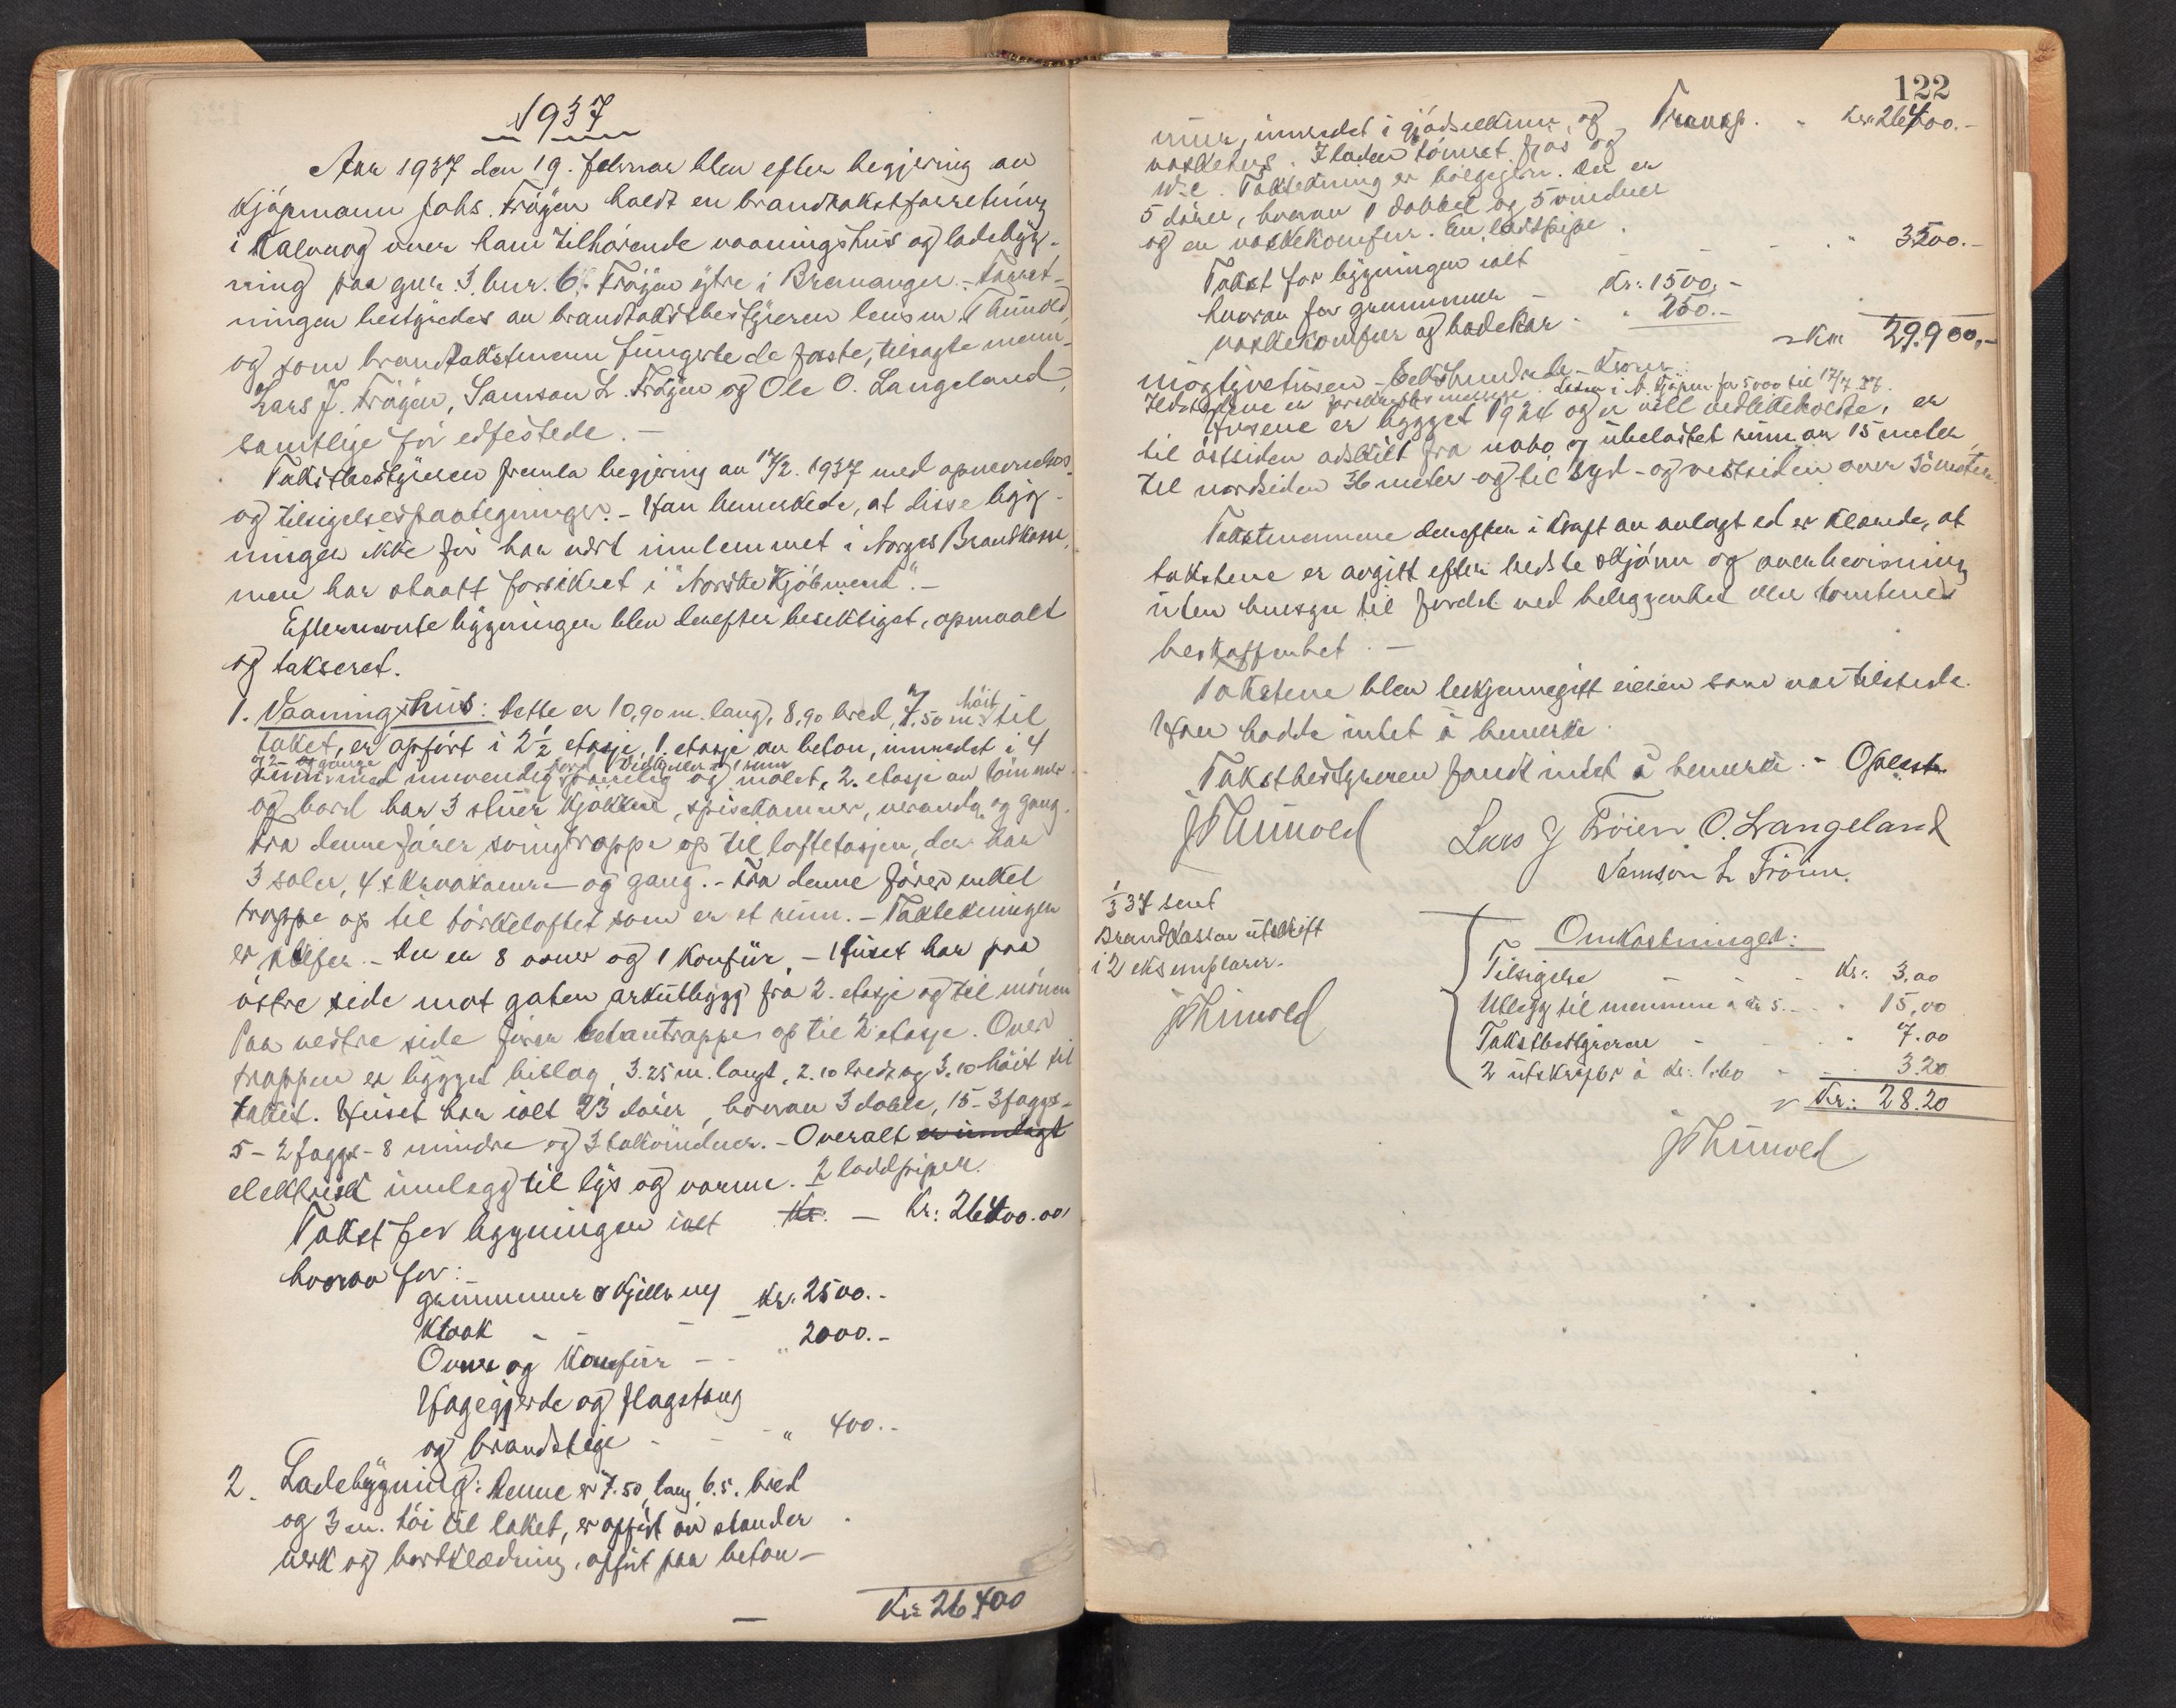 1937
Aar 1937 den 19. februar blev efter begjæring av
Kjøpmann Johs. Frøyen holdt en brandtakstforretning
i Kalvaag over ham tilhørende vaaningshus og ladebyg-
ning paa gnr. 3. bnr. 6. Frøyen ytre i Bremanger. - Forret-
ningen bestyredes av brandtakstbestyreren lensm. Thunold,
og som brandtakstmenn fungerte de faste, tilsagte menn,
Lars J. Frøyen, Samson L. Frøyen og Ole O. Langeland,
samtlige før edfestede. -
Takstbestyreren fremla begjæring av 17/2. 1937 med opnevnelses-
og tilsigelsespaategninger. - Han bemerkede, at disse byg-
ninger ikke før har vært innlemmet i Norges Brandkasse,
men har staatt forsikret i "Norske Kjøbmend". -
Efternevnte bygninger blev derefter besiktiget, opmaalt
og taksert.
1. Vaaningshus: Dette er 10,90 m. lang, 8,90 bred, 7.50 m. høit til
taket, er opført i 2½ etasje, 1. etasje av beton, innredet i 4
og 2 ganger
rum med innvendig panelig og malet, 2. etasje av tømmer
og bord har 3 stuer kjøkken, spisekammer, veranda og gang.
Fra denne fører svingtrappe op til loftetasjen, der har
3 saler, 4 skraakamre og gang. - Fra denne fører enkel
trappe op til tørkeloftet som er et rum. - Taktekningen
er skifer. - Der er 8 ovner og 1 Komfür, - Huset har paa
østre side mot gaten arkutbygg fra 2. etasje og til mønen
Paa vestre side fører betontrappe op til 2 etasje. Over
trappen er bygget bislag, 3.25 m. langt, 2.10 bredt og 3.10 høit til
taket. Huset har ialt 23 dører, hvorav 3 doble, 15 - 3 faggs-
5 - 2 faggs - 8 mindre og 3 takvinduer. - Overalt er innlagt
elektrisk innlegg til lys og varme. 2 loddpiper.
Takst for bygningen ialt Kr. — Kr: 26400.00
hvorav for:
grunnmur og kjeller Kr. 2500.-
Kloak
Ovner og Komfür - - " 2000.-
Hagegjerde og flagstang
og brandstige - - - " 400.-
2. Ladebygning: Denne er 7.50 lang, 6.5. bred
og 3 m. høi til taket, er opført av stender
verk og bordklædning, opført paa beton-
Kr 26400
122
mur, innredet i gjødselkum, og Transp. - Kr. 26400.-
vaskehus. I laden tømret fjøs og
W.c. Taktekning er bølgejern. Der er
5 dører, hvorav 1 dobbel og 5 vinduer
og en vaskekomfur. En loddpipe.
Takst for bygningen ialt - - - " 3500.-
hvorav for grunnmur - Kr: 1500.-
vaskekomfur og badekar - " 250.-
Kr. 29.900,-
niogtyvetusen - - hundrede - Kroner.
Ildstedene er forskriftsmessige.
Husene er bygget 1924 og er vell vedlikeholdte, er
til østsiden adskilt fra nabo ved ubelastet rum av 15 meter,
til nordsiden 36 meter og til syd - og vestsiden over 50 meter.
Takstmennene derefter i kraft av avlagt ed erklærede, at
takstene er avgitt efter bedste skjønn og overbevisning
uten hensyn til fordel ved beliggenhet eller tomtenes
beskaffenhet. -
Takstene blev bekjennegitt eieren som var tilstede.
Han hadde intet å bemerke.
Takstbestyreren fandt intet å bemerke. - Oplest.
JThunold Lars J Frøien O. Langeland
Samson L Frøien.
1/3 37 sent
Brandkassen utskrift
i 2 eksemplarer.
JThunold
Omkostninger:
Tilsigelse - - - Kr: 3.00
Utlegg til mennene a kr 5. - " 15,00
Takstbestyreren - - " 7.00
2 utskrifter á Kr. 1.60 - - 3.20
Kr: 28.20
JThunold